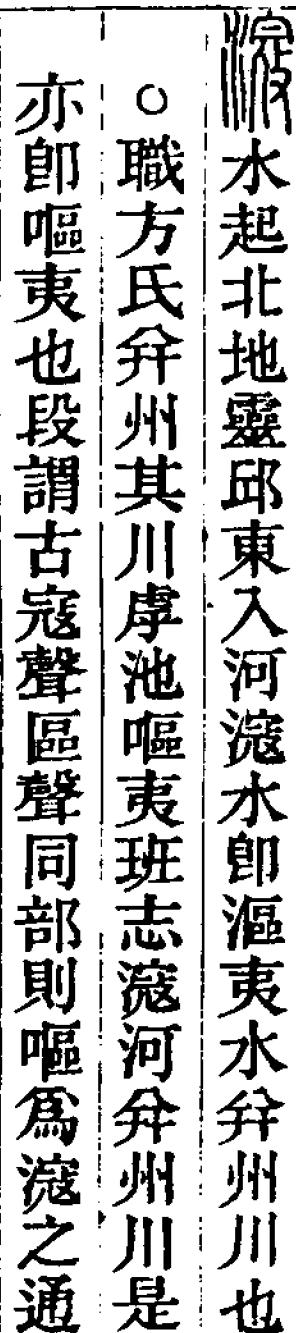 滱水起北地靈邱東入河滱水卽漚夷水幷州川也
○職方氏幷州其川虖池嘔夷班志滱河幷州川是
亦卽嘔夷也段謂古寇聲區聲同部則嘔爲滱之通